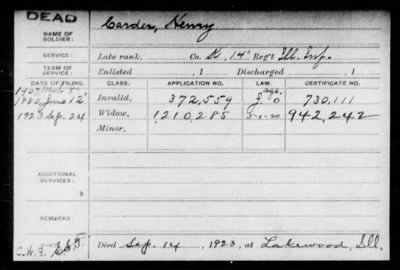 DEAD
NAME OF SOLDIER: Carder, Henry
SERVICE: Late rank, Co. K, 14" Reg't Ill. Inf.
TERM OF SERVICE: Enlisted , 1 Discharged , 1
DATE OF FILING. CLASS. APPLICATION NO. LAW. CERTIFICATE NO.
1880 June 12 Invalid, 372,559 730,111
1923 Sep. 24 Widow, 1210285 5-1-20 942,242
Minor,
ADDITIONAL SERVICES:
REMARKS:
Died Sep. 14, 1923, at Lakewood, Ill.